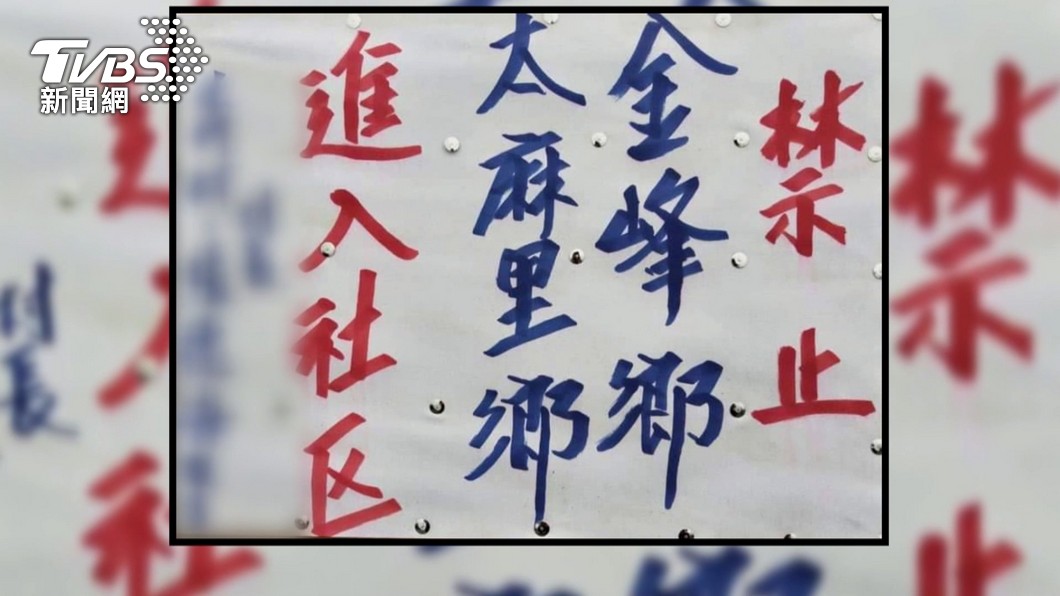 TVBS
新聞網
禁止
金峰鄉
太麻里鄉
進入社区